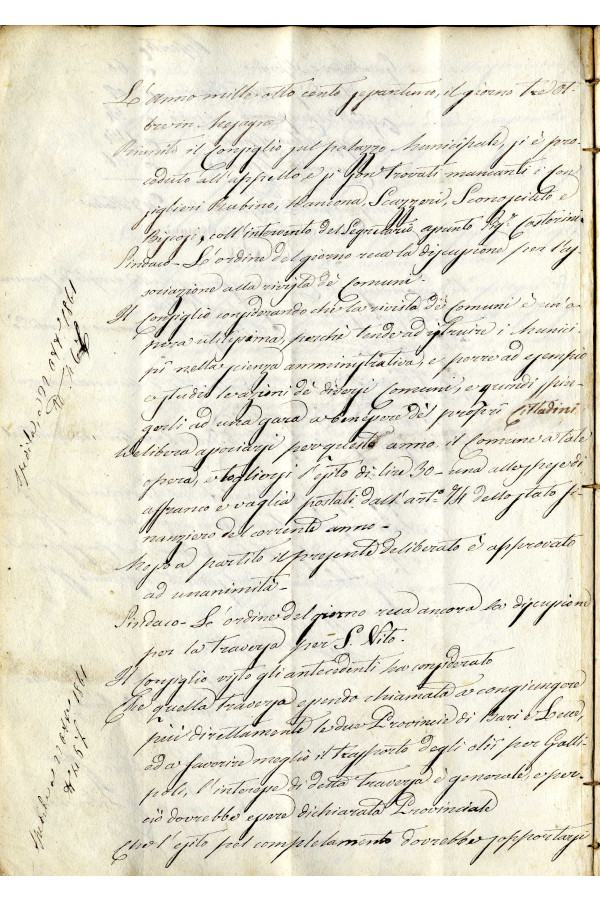 L'anno mille otto cento sessantuno, il giorno tre Ot-
bre in Mesagne
Riunito il Consiglio sul palazzo Municipale, si è pro-
ceduto all'appello e si son trovati mancanti i Con-
siglieri Rubino, Mancona, Scazzeri, Sconosciuto e
coll'intervento del Segretario
Sindaco – L'ordine del giorno reca la discussione per l'As-
sociazione alla rivista de' Comuni –
Il Consiglio considerando che la rivista dei Comuni è un'o-
pera utilissima, perchè tende ad istruire i Munici-
pii nella scienza amministrativa, e porre ad esempio
e studio le azioni de' diversi Comuni, e quindi spin-
gerli ad una gara a benessere dei proprii Cittadini
Delibera associarsi per questo anno il Comune a tale
opera, e togliersi l'esito di lire 30 – una alle spese di
affranco e vaglia postali dall'art.º 74 dello stato fi-
nanziero del corrente anno –
Messo a partito il presente deliberato è approvato
ad unanimità –
Sindaco – L'ordine del giorno reca ancora la discussione
per la traversa per S. Vito.
Il Consiglio visto gli antecedenti ha considerato
Che quella traversa essendo chiamata a congiungere
più direttamente le due Provincie di Bari e Lecce,
ed a favorire meglio il trasporto degli olii per Galli-
poli, l'interesse di detta traversa è generale, e per-
ciò dovrebbe essere dichiarata Provinciale
Che l'esito pel completamento dovrebbe sopportarsi
1861
1861